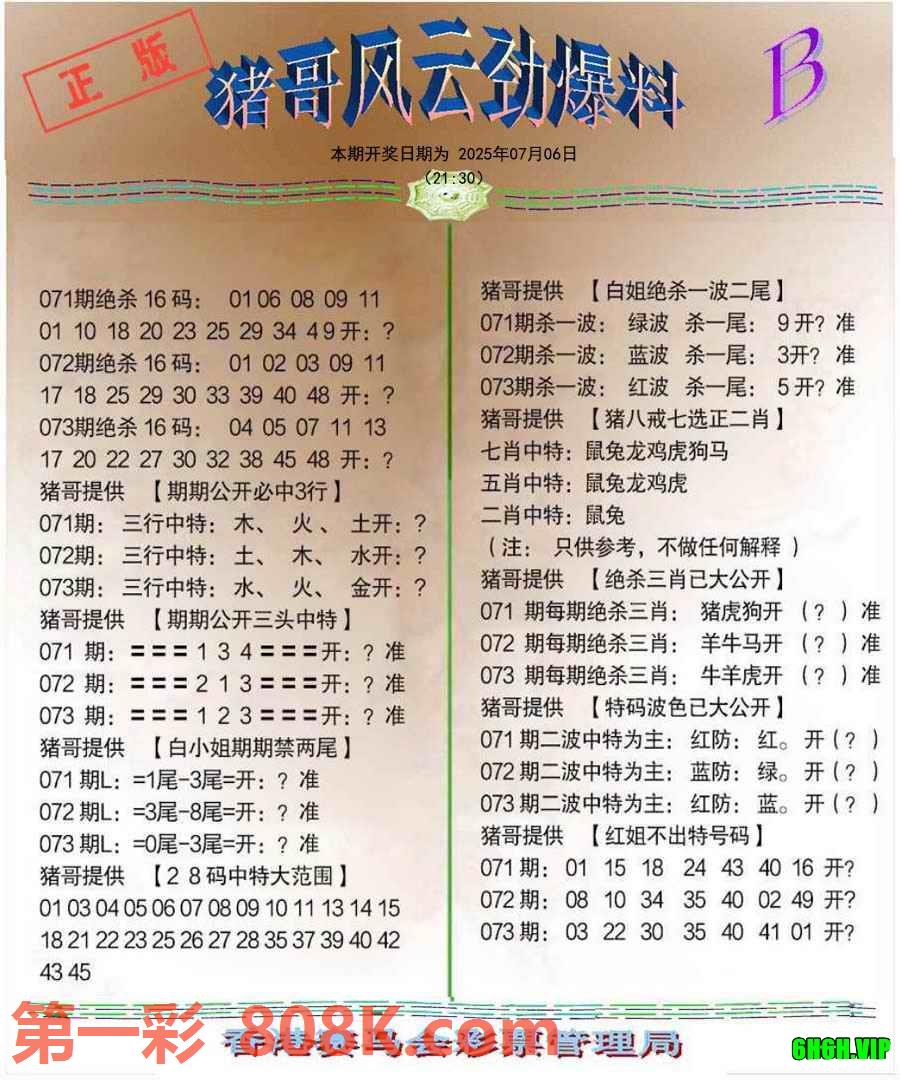 正版
猪哥风云劲爆料
B
本期开奖日期为 2025年07月06日
(21:30)
071期绝杀 16 码： 01 06 08 09 11
01 10 18 20 23 25 29 34 49 开：?
072期绝杀 16 码： 01 02 03 09 11
17 18 25 29 30 33 39 40 48 开：?
073期绝杀 16 码： 04 05 07 11 13
17 20 22 27 30 32 38 45 48 开：?
猪哥提供 【期期公开必中3行】
071期：三行中特：木、 火、 土开：?
072期：三行中特：土、 木、 水开：?
073期：三行中特：水、 火、 金开：?
猪哥提供 【期期公开三头中特】
071 期：===１３４===开：? 准
072 期：===２１３===开：? 准
073 期：===１２３===开：? 准
猪哥提供 【白小姐期期禁两尾】
071 期L：=1尾-3尾=开：? 准
072 期L：=3尾-8尾=开：? 准
073 期L：=0尾-3尾=开：? 准
猪哥提供 【２８码中特大范围】
01 03 04 05 06 07 08 09 10 11 13 14 15
18 21 22 23 25 26 27 28 35 37 39 40 42
43 45
猪哥提供 【白姐绝杀一波二尾】
071期杀一波： 绿波 杀一尾： 9 开? 准
072期杀一波： 蓝波 杀一尾： 3开? 准
073期杀一波： 红波 杀一尾： 5 开? 准
猪哥提供 【猪八戒七选正二肖】
七肖中特：鼠兔龙鸡虎狗马
五肖中特：鼠兔龙鸡虎
二肖中特：鼠兔
（注： 只供参考，不做任何解释 ）
猪哥提供 【绝杀三肖已大公开】
071 期每期绝杀三肖： 猪虎狗开 （? ）准
072 期每期绝杀三肖： 羊牛马开 （? ）准
073 期每期绝杀三肖： 牛羊虎开 （? ）准
猪哥提供 【特码波色已大公开】
071 期二波中特为主：红防：红。开（? ）
072 期二波中特为主：蓝防：绿。开（? ）
073 期二波中特为主：红防：蓝。开（? ）
猪哥提供 【红姐不出特号码】
071 期： 01 15 18 24 43 40 16 开?
072 期： 08 10 34 35 40 02 49 开?
073 期： 03 22 30 35 40 41 01 开?
第一彩 808K.com
香港赛马会彩票管理局
6H6H.VIP